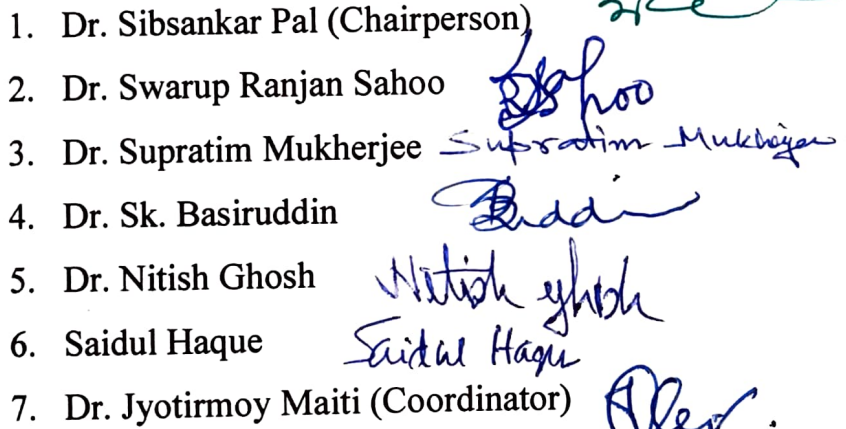 1. Dr. Sibsankar Pal (Chairperson)
2. Dr. Swarup Ranjan Sahoo Sahoo
3. Dr. Supratim Mukherjee Supratim Mukherjee
4. Dr. Sk. Basiruddin
5. Dr. Nitish Ghosh Nitish Ghosh
6. Saidul Haque Saidul Haque
7. Dr. Jyotirmoy Maiti (Coordinator)